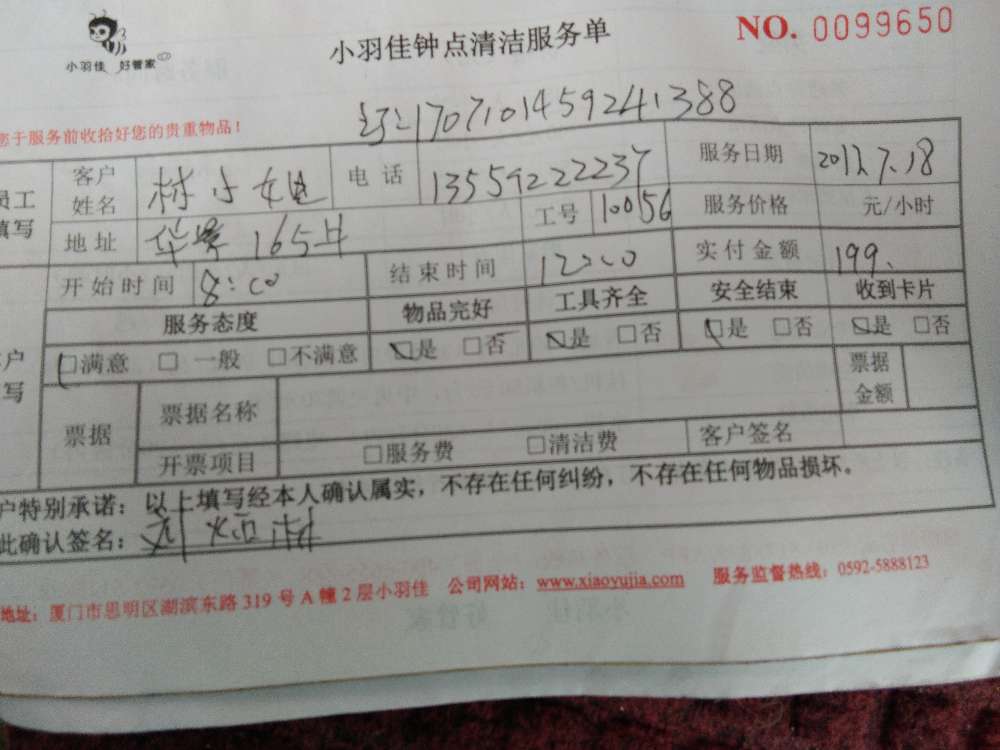 小羽佳 好管家
小羽佳钟点清洁服务单
NO. 0099650
您于服务前收拾好您的贵重物品！
1707101459241388
员工填写
客户姓名 林小姐 电话 13559222237 服务日期 2017.7.18
地址 华 165 工号 100156 服务价格 元/小时
开始时间 8:00 结束时间 12:00 实付金额 199.
服务态度 物品完好 工具齐全 安全结束 收到卡片
户写
□满意 □一般 □不满意 □是 □否 □是 □否 □是 □否 □是 □否
票据 票据名称 票据金额
开票项目 □服务费 □清洁费 客户签名
户特别承诺：以上填写经本人确认属实，不存在任何纠纷，不存在任何物品损坏。
此确认签名：
地址：厦门市思明区湖滨东路319号A幢2层小羽佳 公司网站：www.xiaoyujia.com 服务监督热线：0592-5888123